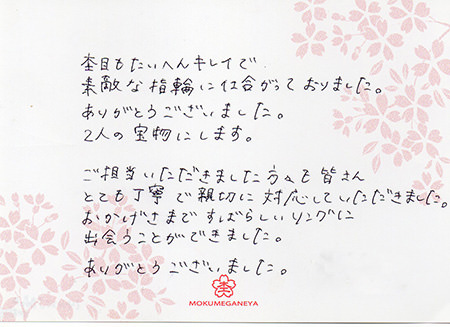 杢目もたいへんキレイで
素敵な指輪に仕合がっておりました。
ありがとうございました。
2人の宝物にします。
ご担当いただきました方々も皆さん
とても丁寧で親切に対応していただきました。
おかげさまですばらしいリングに
出会うことができました。
ありがとうございました。
杢
MOKUMEGANEYA